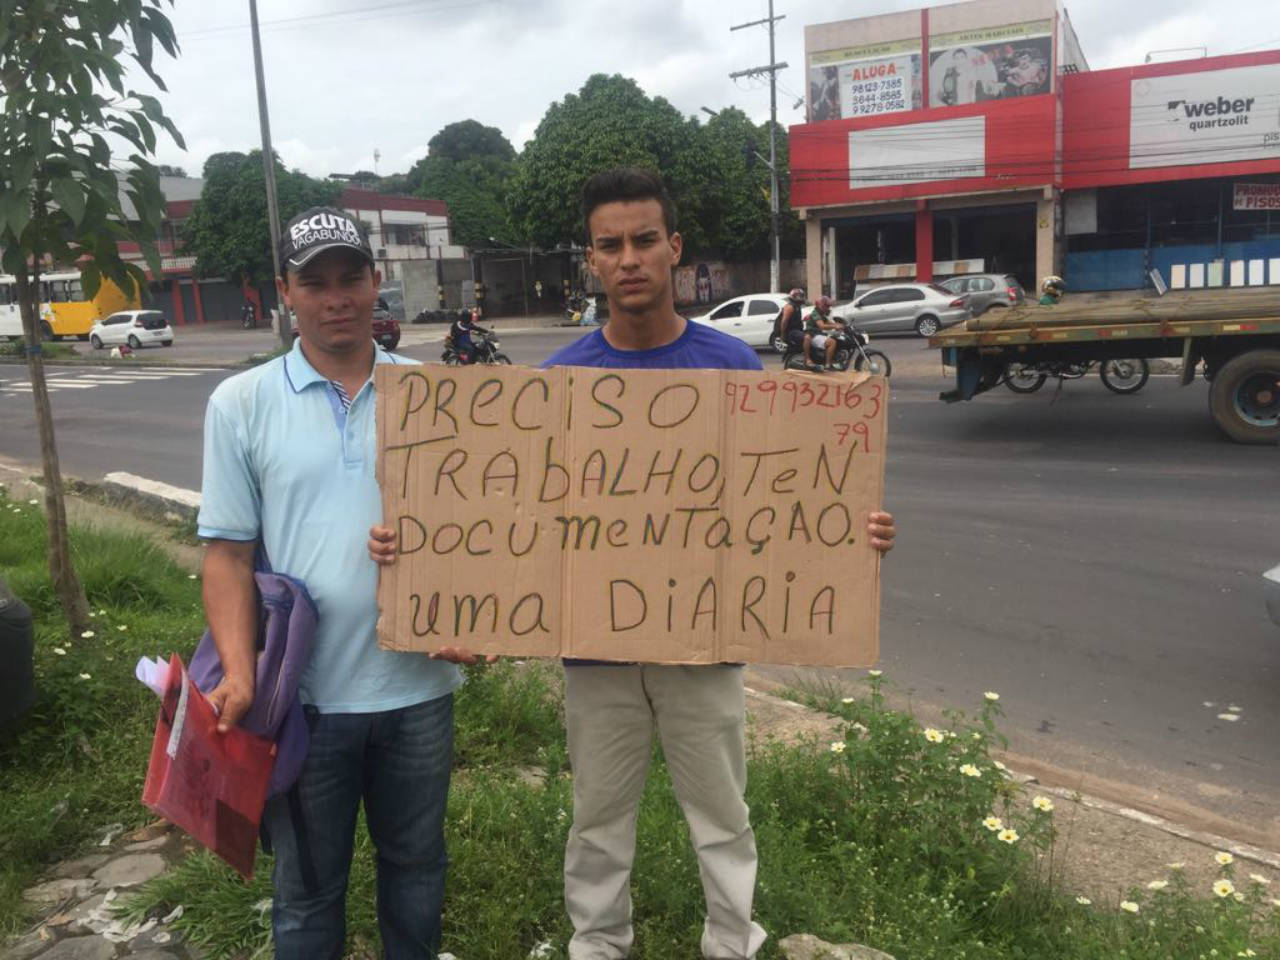 MUSCULAÇÃO
ARTES MARCIAIS
ALUGA
98123-7385
3644-8585
99278-0582
weber
quartzolit
pis
PROMOÇ
DE PISOS
ESCUTA
VAGABUNDO
PRECISO
929932163
79
TRABALHO, TEN
DOCUMENTAÇÃO.
UMA DIARIA